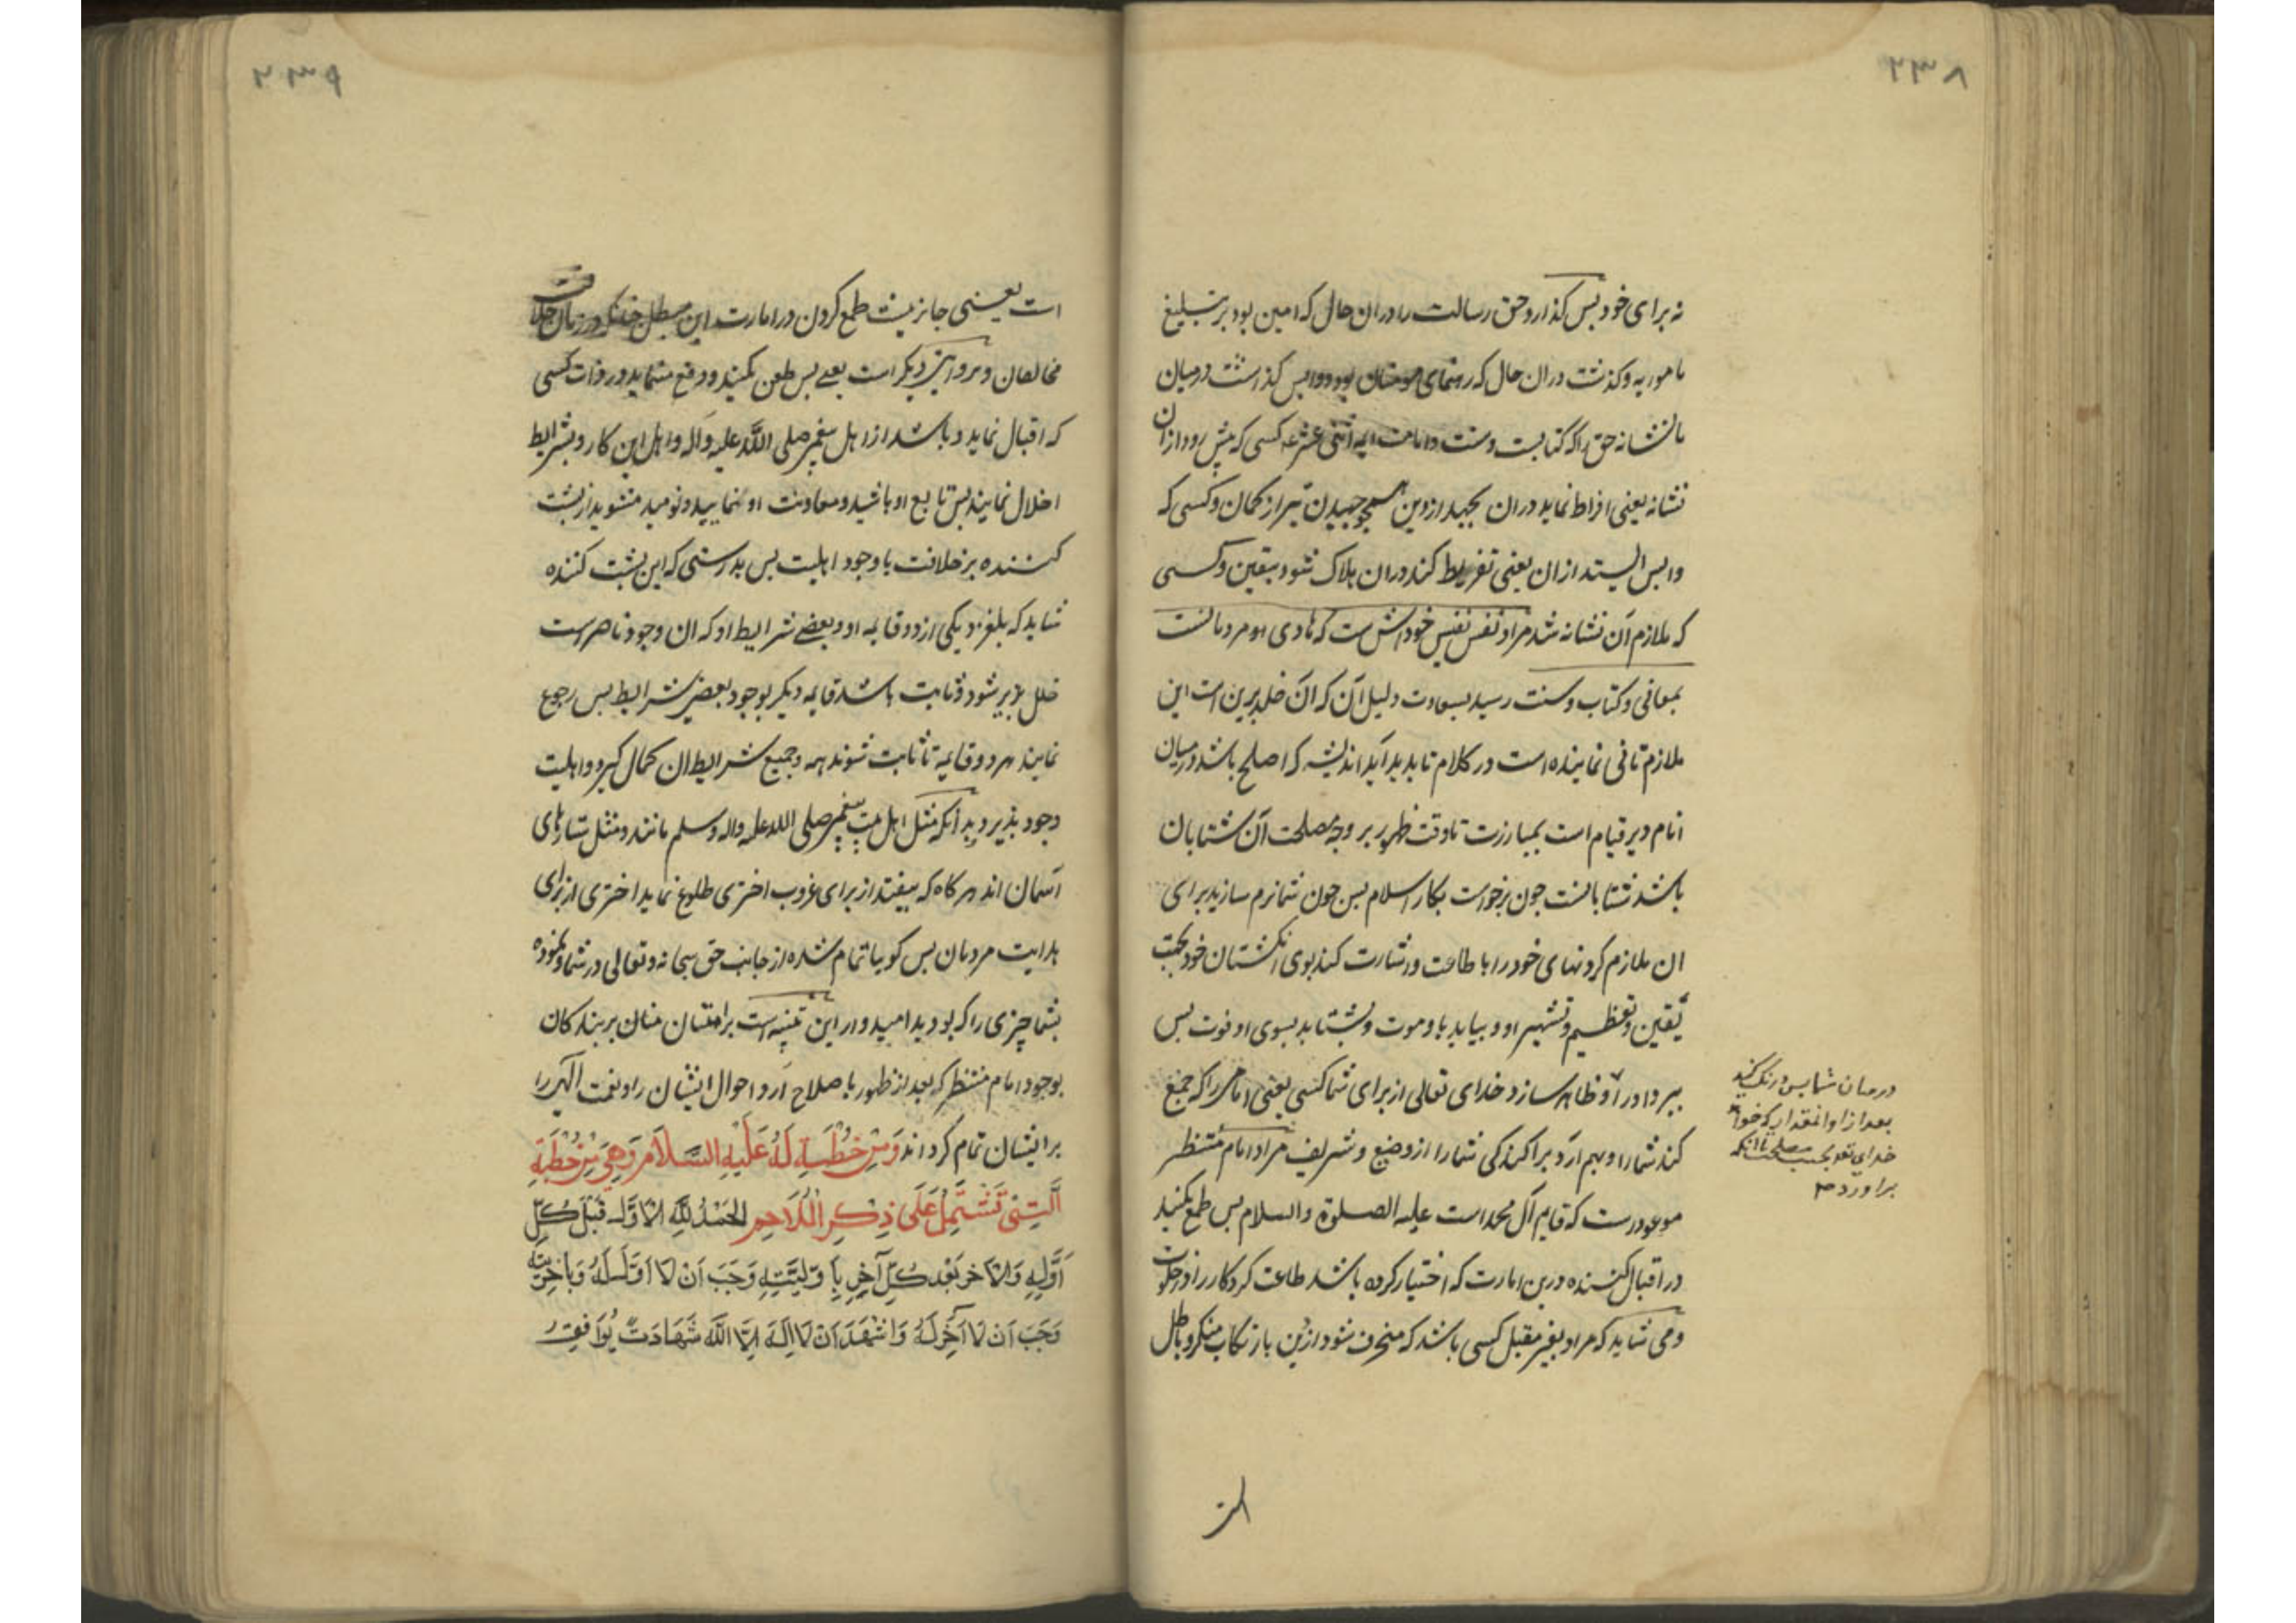 ۲۳۸
نه برای خود پس کذارد حق رسالت را در ان حال که امین بود بر تبلیغ
مامور به و کذشت در ان حال که رهنمای مومنان بود و واپس کذاشت در میان
ما نشانه حق را که کتابست و سنت و امامت ایمه اثنی عشر کسی که پیش رود از ان
نشانه یعنی افراط نماید در ان بجهید از دین همچو جهیدن تیر از کمان و کسی که
واپس ایستد از ان یعنی تفریط کند در ان هلاک شود بیقین و کسی
که ملازم آن نشانه شد مراد نفس نفیس خودش است که هادی او مردمانست
بمعانی و کتاب و سنت رسید بسعادت دلیل آن که آن خلد برین است این
ملازم تانی نماینده است در کلام تا پدید آید اندیشه که اصلح باشد در میان
انام دیر قیام است بمبارزت تا وقت ظهور بر وجه مصلحت آن شتابان
باشد شتابانست چون برخواست بکار اسلام پس چون شما نرم سازید برای
ان ملازم کردنهای خود را با طاعت و اشارت کنید بوی انکشتان خود بجهت
یقین و تعظیم و تشهیر او و بیاید باو موت و بشتابد بسوی او فوت پس
ببرد او را و ظاهر سازد خدای تعالی از برای شما کسی یعنی امامی را که جمع
کند شما را و بهم آرد پراکندکی شما را از وضیع و شریف مراد امام منتظر
موعودست که قایم آل محمد است علیه الصلوة والسلام پس طمع مکنید
در اقبال کننده درین امارت که اختیار کرده باشد طاعت کردکار را در خلوت
و می شاید که مراد بغیر مقبل کسی باشد که منحرف شود از دین بارتکاب منکر و باطل
درمیان شما پس درنک کنید
بعد از او انمقدار که خواهد
خدای تعو بحسب مصلحت تا انکه
براورد
۲۳۹
است یعنی جایز نیست طمع کردن در امارت این
مخالفان و در روایتی دیکر است یعنی پس طعن مکنید و دفع منمایید در ذات کسی
که اقبال نماید و باشد از اهل پیغمبر صلی الله علیه و آله و اهل این کار و بشرایط
اخلال نمایند پس تابع او باشید و معاونت او نمایید و نومید مشوید از پشت
کننده بر خلافت با وجود اهلیت پس بدرستی که این پشت کننده
شاید که بلغزد یکی از دو قایمه او و بعضی شرایط او که ان وجود ناصر است
خلل پذیر شود و ثابت باشد قایمه دیکر بوجود بعضی شرایط پس رجوع
نمایند هر دو قایمه تا ثابت شوند همه و جمیع شرایط ان کمال کیرد و اهلیت
وجود پذیرد بدانکه مثل اهل بیت پیغمبر صلی الله علیه واله وسلم مانند مثل ستارهای
آسمان اند هر کاه که بیفتد از برای غروب اختری طلوع نماید اختری از برای
هدایت مردمان پس کوییا تمام شده از جانب حق سبحانه و تعالی در شما و نموده
بشما چیزی را که بودید امیدوار این تنبیه است بر امتنان منان بر بندکان
بوجود امام منتظر که بعد از ظهور باصلاح آرد احوال ایشان را و نعمت الهی را
بر ایشان تمام کرداند وَمِنْ خُطْبَةٍ لَهُ عَلَيْهِ السَّلَامُ وَهِيَ مِنْ خُطْبَةِ
الَّتِي تَشْتَمِلُ عَلَى ذِكْرِ الْمَلَاحِمِ الحَمْدُ لِلّهِ الاَوَّلِ قَبْلَ كُلِّ
اَوَّلٍ وَالاخِرِ بَعْدَ كُلِّ آخِرٍ بِاَوَّلِيَّتِهِ وَجَبَ اَنْ لَا اَوَّلَ لَهُ وَبِاخِرِيَّتِهِ
وَجَبَ اَنْ لَا آخِرَ لَهُ وَاَشْهَدُ اَنْ لَا اِلَهَ اِلَّا اللّهُ شَهَادَتً يُوَافِقُ